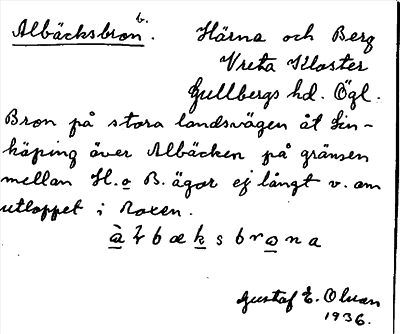 Albäcksbron b.
Härna och Berg
Vreta Kloster
Gullbergs hd. Ögl.
Bron på stora landsvägen åt Lin-
köping över Albäcken på gränsen
mellan H. o B. ägor ej långt v. om
utloppet i Roxen.
Gustaf E. Olsson
1936.